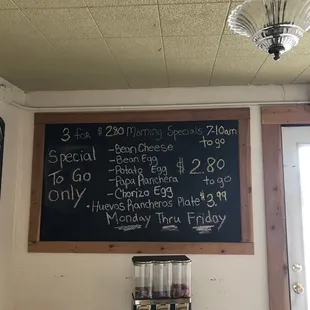 3 for $2.80 Morning Specials 7-10am
Special To Go Only
-Bean Cheese to go
-Bean Egg
-Potato Egg $2.80
-Papa Ranchera to go
-Chorizo Egg
•Huevos Rancheros Plate $3.99
Monday Thru Friday